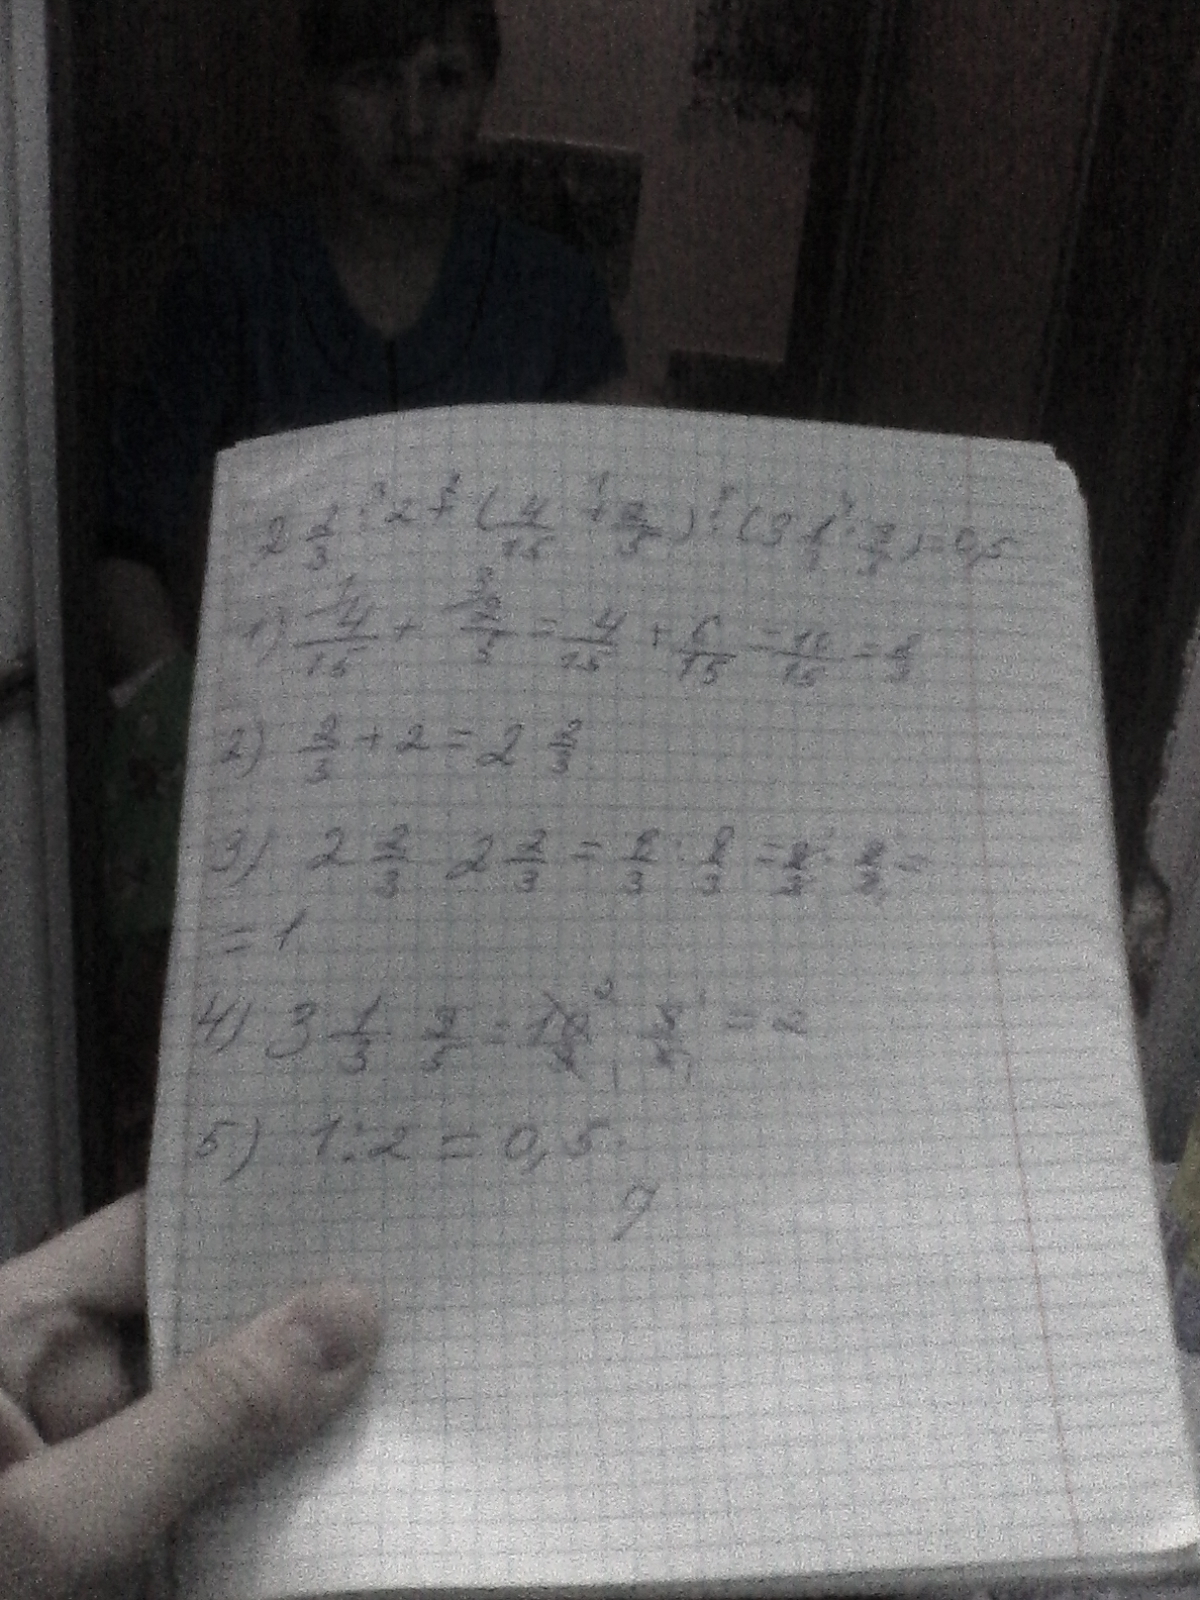 2 2/3 : 2 + (4/15 + 2/5) : (3 1/3 · 3/5) = 0,5
1) 4/15 + 2/5 = 4/15 + 6/15 = 10/15 = 2/3
2) 2/3 + 2 = 2 2/3
3) 2 2/3 : 2 2/3 = 8/3 : 8/3 = 8/3 · 3/8 =
= 1
4) 3 1/3 · 3/5 = 10/3 · 3/5 = 2
5) 1 : 2 = 0,5.